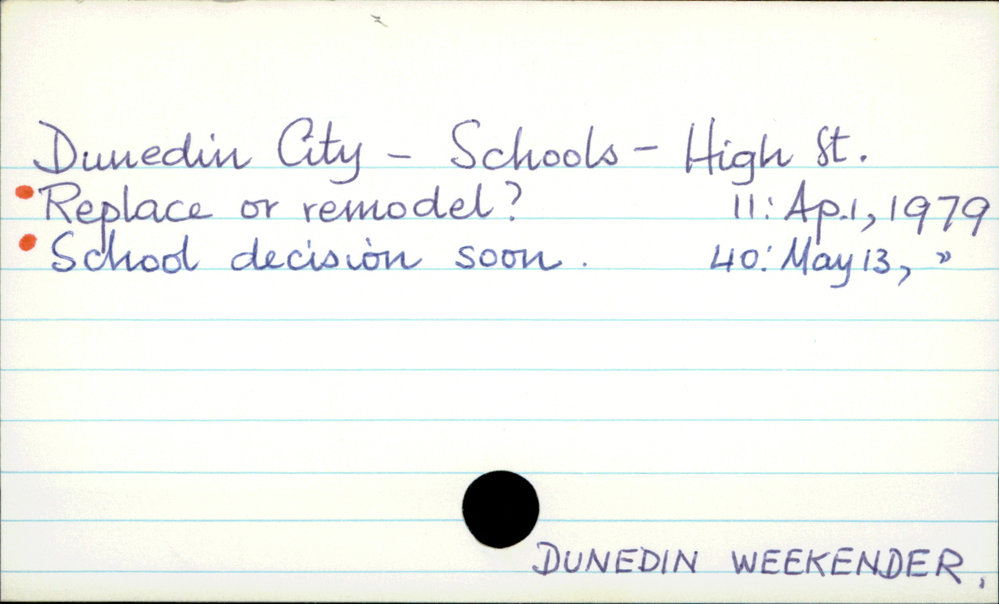 Dunedin City - Schools - High St.
• Replace or remodel? 11: Ap.1, 1979
• School decision soon. 40: May 13, "
DUNEDIN WEEKENDER.